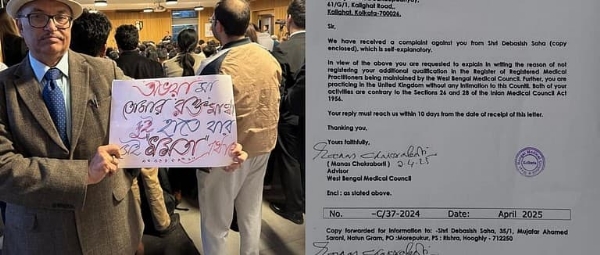 অভয়া মা
তোমার রক্ত মাখা
দুই হাতে যার
মমতা
61/G/1, Kalighat Road,
Kalighat, Kolkata-700026.
Sir,
We have received a complaint against you from Shri Debasish Saha (copy
enclosed), which is self-explanatory.
In view of the above you are requested to explain in writing the reason of not
registering your additional qualification in the Register of Registered Medical
Practitioners being maintained by the West Bengal Medical Council. Further, you are
practicing in the United Kingdom without any intimation to this Council. Both of your
activities are contrary to the Sections 26 and 28 of the Inian Medical Council Act
1956.
Your reply must reach us within 10 days from the date of receipt of this letter.
Thanking you,
Yours faithfully,
2.4.25
(Manas Chakraborti)
Advisor
West Bengal Medical Council
Encl : as stated above.
No. –C/37-2024 Date: April 2025
Copy forwarded for information to: -Shri Debasish Saha, 35/1, Mujafar Ahamed
Sarani, Natun Gram, PO :Morepukur, PS : Rishra, Hooghly - 712250